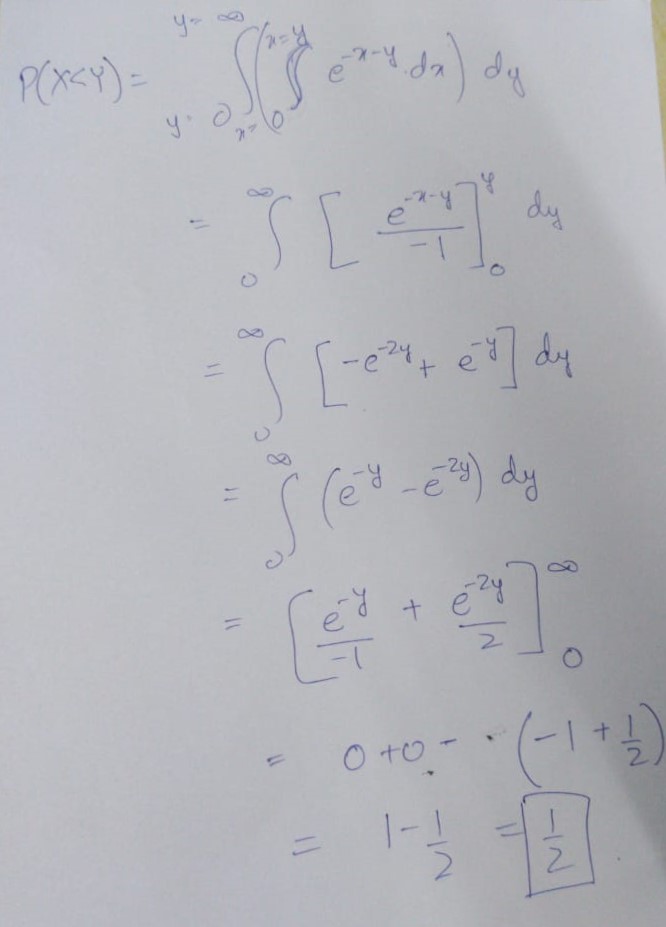 P(X<Y) = ∫_{y=0}^{y=∞} ( ∫_{x=0}^{x=y} e^{-x-y} dx ) dy
= ∫_0^∞ [ e^{-x-y} / -1 ]_0^y dy
= ∫_0^∞ [ -e^{-2y} + e^{-y} ] dy
= ∫_0^∞ ( e^{-y} - e^{-2y} ) dy
= [ e^{-y} / -1 + e^{-2y} / 2 ]_0^∞
= 0 + 0 - ( -1 + 1/2 )
= 1 - 1/2 = 1/2